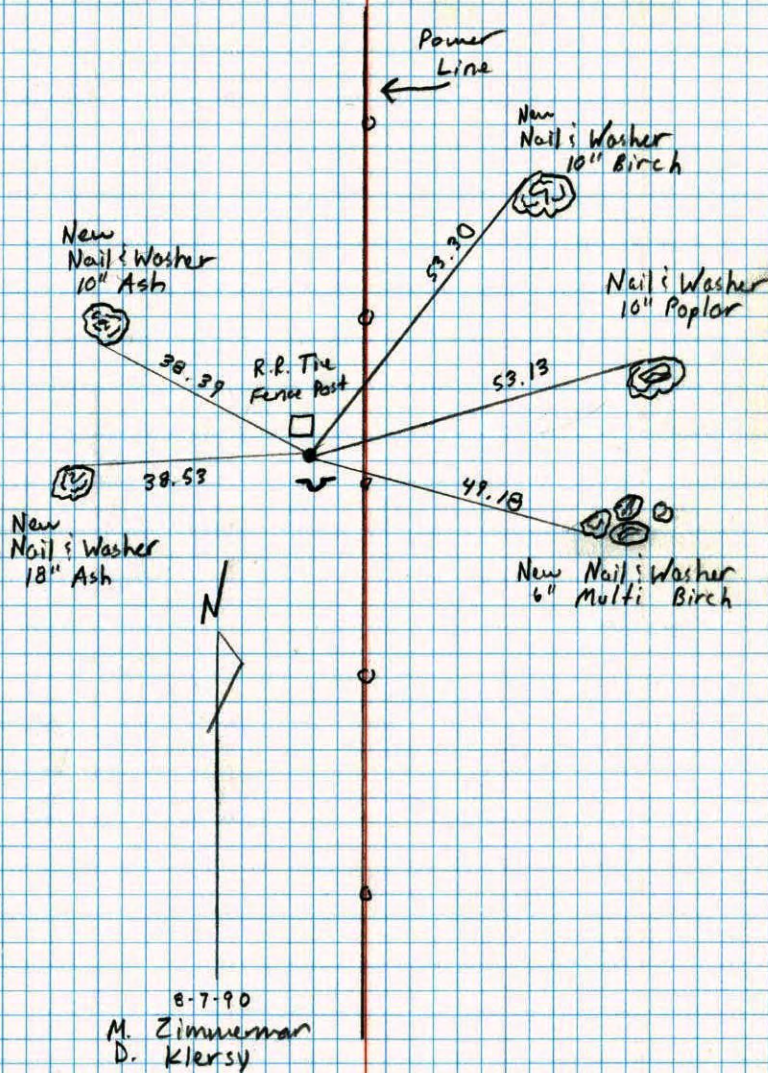 Power
Line
New
Nail & Washer
10" Birch
53.30
New
Nail & Washer
10" Ash
Nail & Washer
10" Poplar
38.39
R.R. Tie
Fence Post
53.13
38.53
49.18
New
Nail & Washer
18" Ash
New Nail & Washer
6" Multi Birch
N
8-7-90
M. Zimmerman
D. Klersy